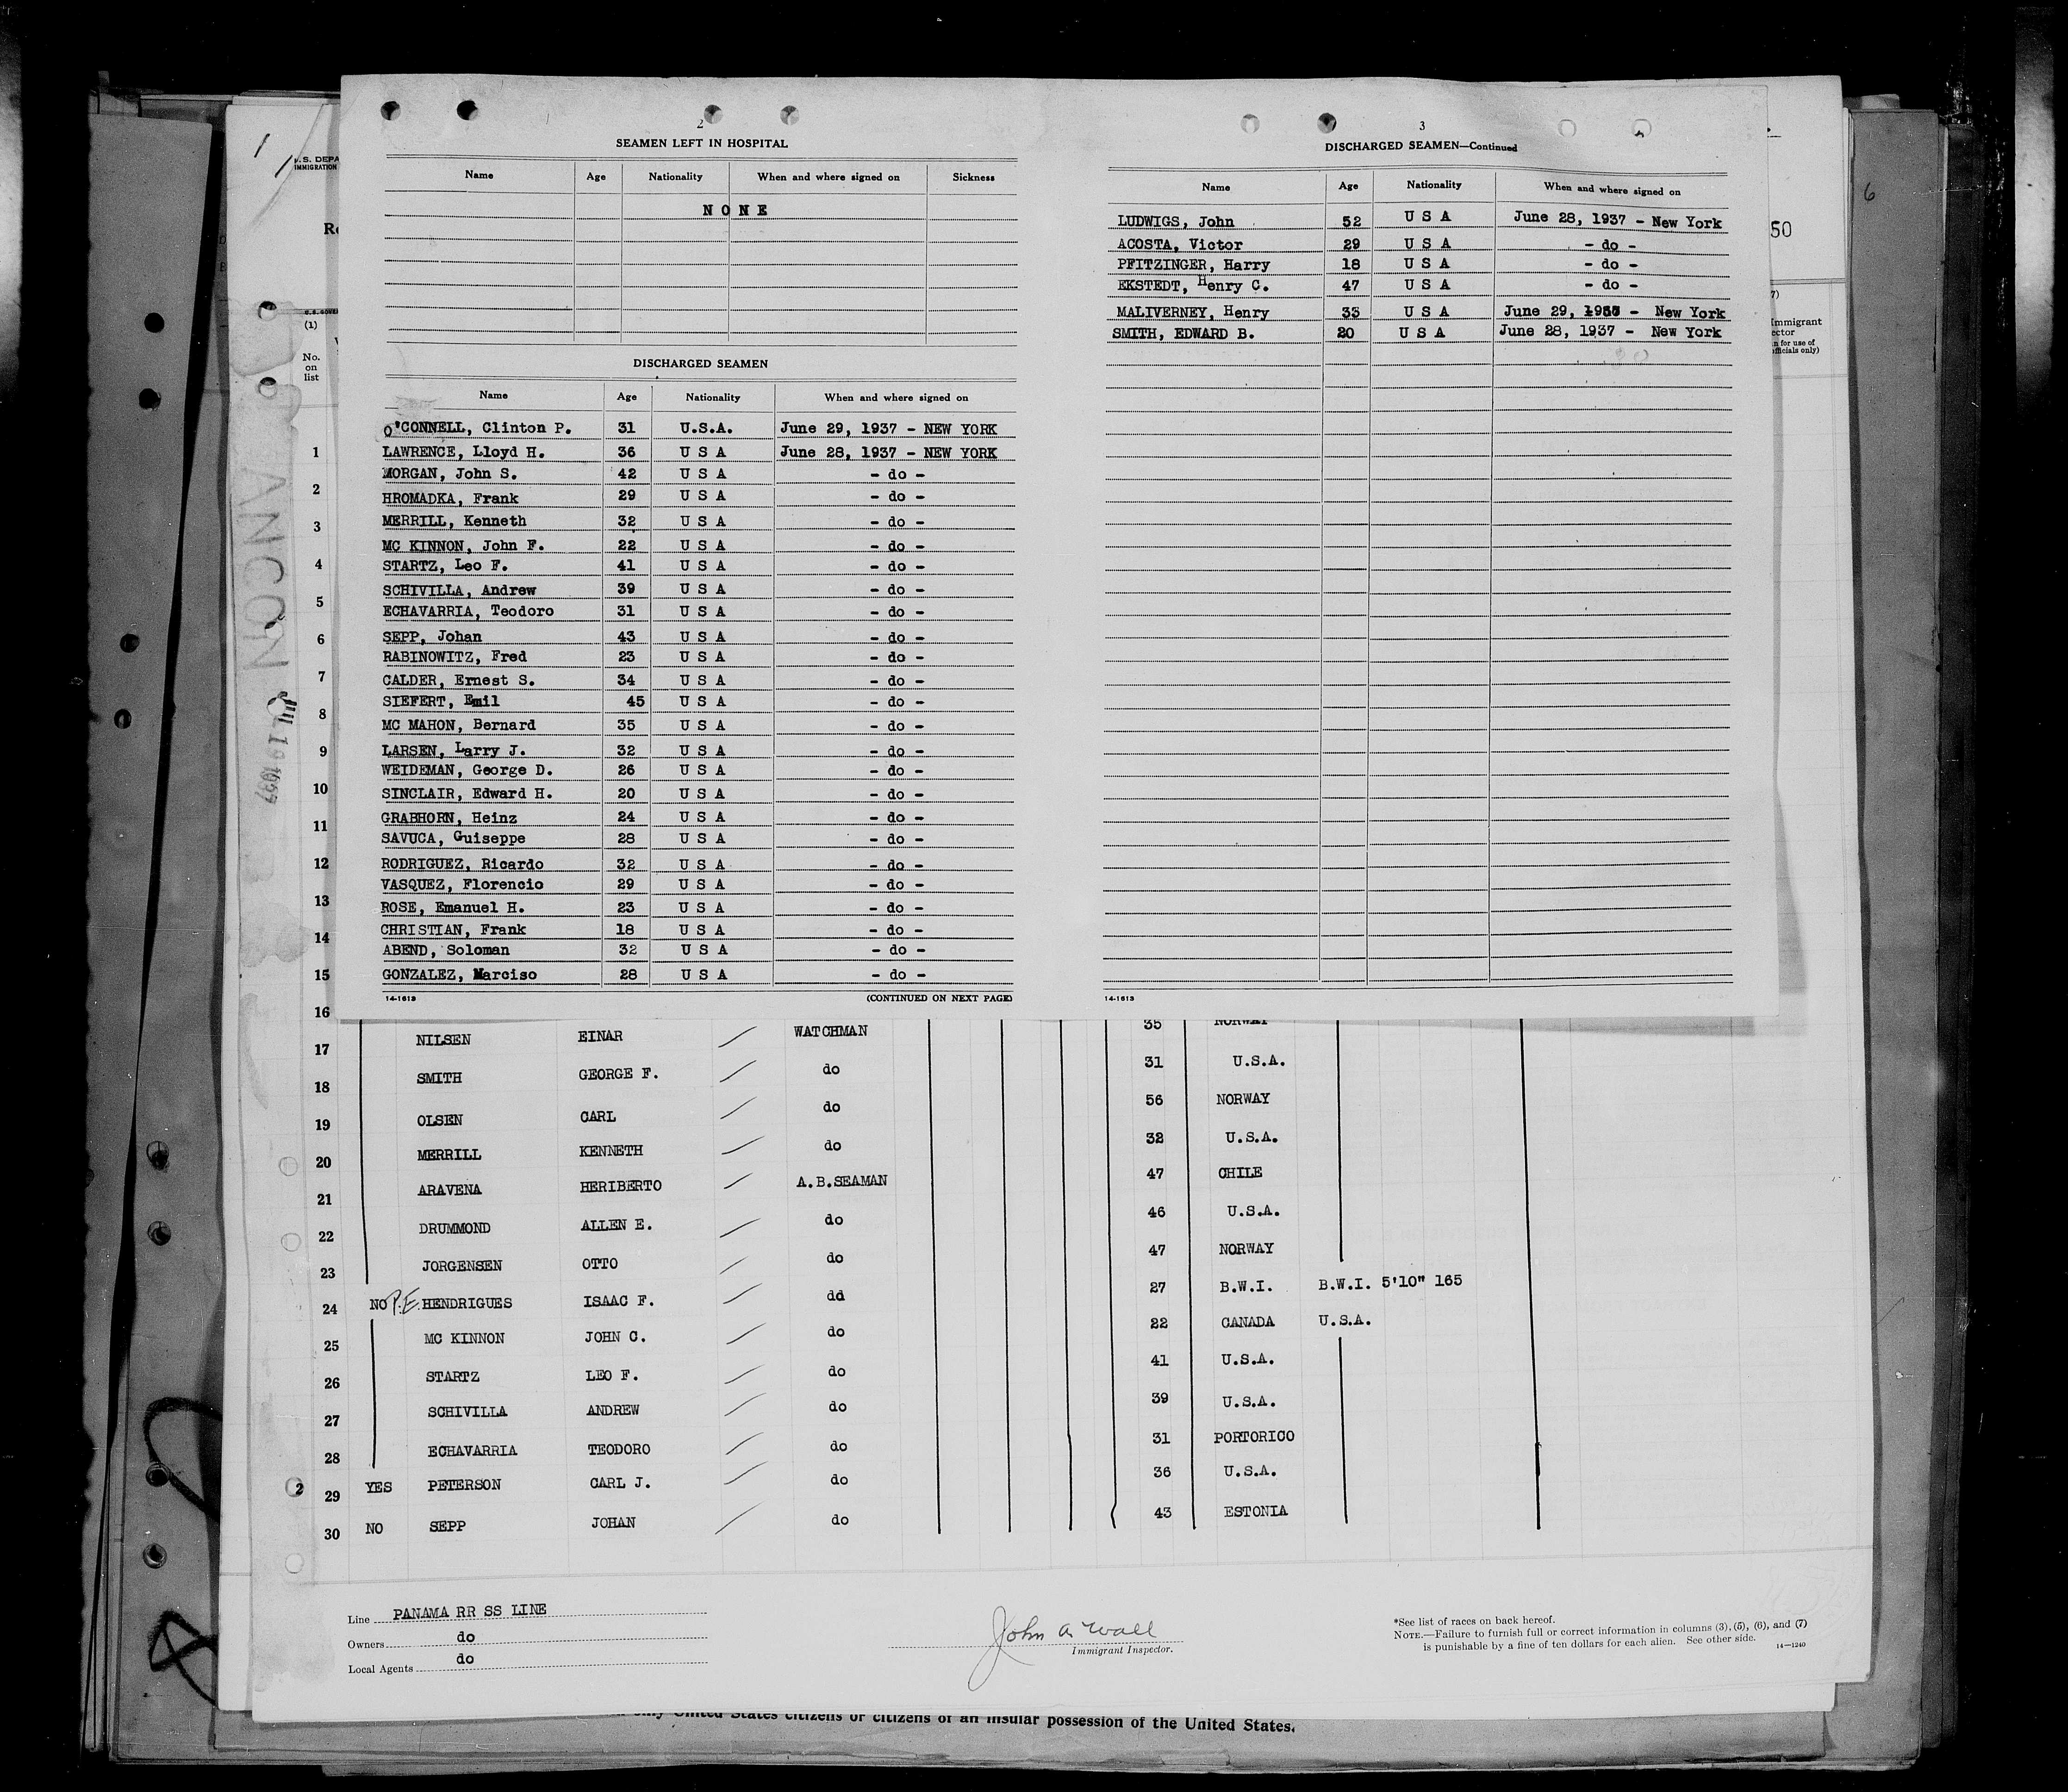 2
SEAMEN LEFT IN HOSPITAL
Name Age Nationality When and where signed on Sickness
NONE
DISCHARGED SEAMEN
Name Age Nationality When and where signed on
O'CONNELL, Clinton P. 31 U.S.A. June 29, 1937 - NEW YORK
LAWRENCE, Lloyd H. 36 U S A June 28, 1937 - NEW YORK
MORGAN, John S. 42 U S A - do -
HROMADKA, Frank 29 U S A - do -
MERRILL, Kenneth 32 U S A - do -
MC KINNON, John F. 22 U S A - do -
STARTZ, Leo F. 41 U S A - do -
SCHIVILLA, Andrew 39 U S A - do -
ECHAVARRIA, Teodoro 31 U S A - do -
SEPP, Johan 43 U S A - do -
RABINOWITZ, Fred 23 U S A - do -
CALDER, Ernest S. 34 U S A - do -
SIEFERT, Emil 45 U S A - do -
MC MAHON, Bernard 35 U S A - do -
LARSEN, Larry J. 32 U S A - do -
WEIDEMAN, George D. 26 U S A - do -
SINCLAIR, Edward H. 20 U S A - do -
GRABHORN, Heinz 24 U S A - do -
SAVUCA, Guiseppe 28 U S A - do -
RODRIGUEZ, Ricardo 32 U S A - do -
VASQUEZ, Florencio 29 U S A - do -
ROSE, Emanuel H. 23 U S A - do -
CHRISTIAN, Frank 18 U S A - do -
ABEND, Soloman 32 U S A - do -
GONZALEZ, Narciso 28 U S A - do -
14-1613 (CONTINUED ON NEXT PAGE)
3
DISCHARGED SEAMEN—Continued
Name Age Nationality When and where signed on
LUDWIGS, John 52 U S A June 28, 1937 - New York
ACOSTA, Victor 29 U S A - do -
PFITZINGER, Harry 18 U S A - do -
EKSTEDT, Henry C. 47 U S A - do -
MALIVERNEY, Henry 33 U S A June 29, - New York
SMITH, EDWARD B. 20 U S A June 28, 1937 - New York
14-1613
1
1
U.S. DEPA
IMMIGRATION
50
(1)
No.
on
list
7)
Immigrant
ector
n for use of
officials only)
6
ANCON
JUL 19 1937
1
2
3
4
5
6
7
8
9
10
11
12
13
14
15
16 35 NORWAY
17 NILSEN EINAR WATCHMAN 31 U.S.A.
18 SMITH GEORGE F. do 56 NORWAY
19 OLSEN CARL do 32 U.S.A.
20 MERRILL KENNETH do 47 CHILE
21 ARAVENA HERIBERTO A.B.SEAMAN 46 U.S.A.
22 DRUMMOND ALLEN E. do 47 NORWAY
23 JORGENSEN OTTO do 27 B.W.I. B.W.I. 5'10" 165
24 NO P.E. HENDRIGUES ISAAC F. dd 22 CANADA U.S.A.
25 MC KINNON JOHN C. do 41 U.S.A.
26 STARTZ LEO F. do 39 U.S.A.
27 SCHIVILLA ANDREW do 31 PORTORICO
28 ECHAVARRIA TEODORO do 36 U.S.A.
2 29 YES PETERSON CARL J. do 43 ESTONIA
30 NO SEPP JOHAN do
Line PANAMA RR SS LINE
Owners do
Local Agents do
John A. Wall
Immigrant Inspector.
*See list of races on back hereof.
NOTE.—Failure to furnish full or correct information in columns (3), (5), (6), and (7)
is punishable by a fine of ten dollars for each alien. See other side. 14—1240
only United States citizens or citizens of an insular possession of the United States.